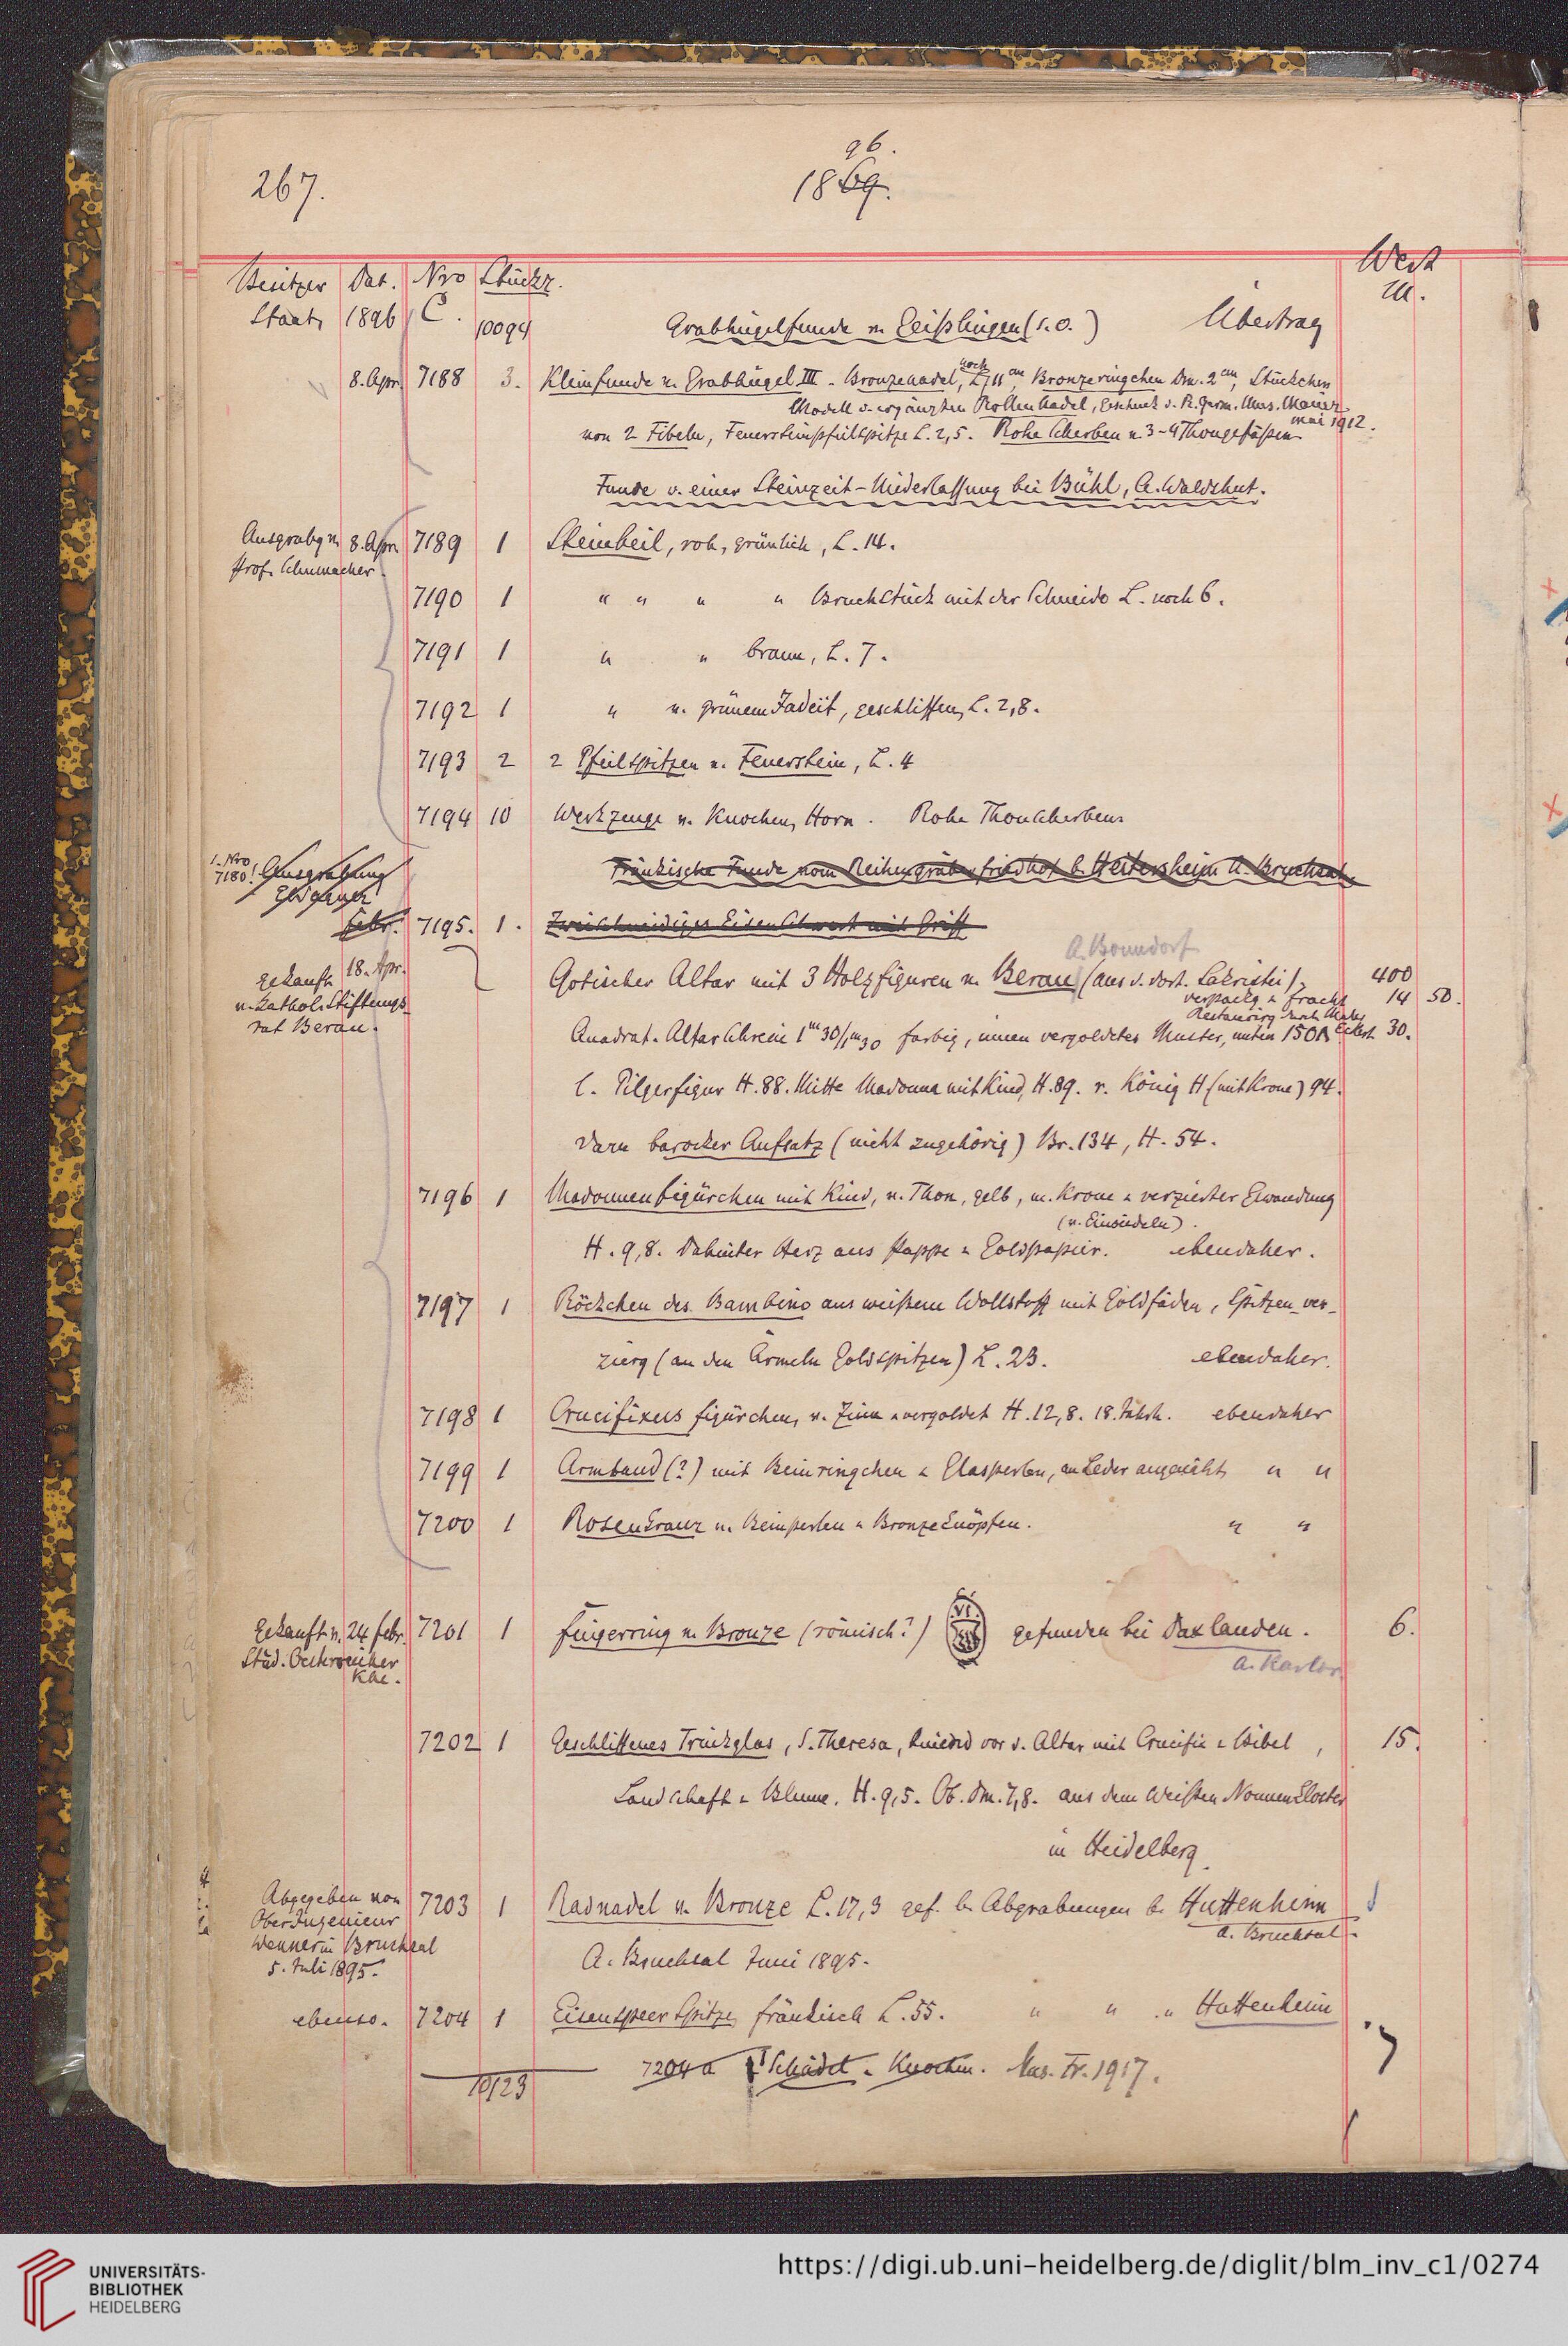 96.
267.
1869.
Besitzer Dat. Nro Stückz. Wert
Staat, 1896 C. 10094 Grabhügelfunde v. Geißlingen (s.o.) Übertrag M.
8. Apr. 7188 3. Kleinfunde v. Grabhügel III - Bronzenadel, noch L. 11 cm, Bronzeringchen Dm. 2 cm, Stückchen
Modell d. ergänzten Rollennadel, Geschenk d. R. Germ. Mus. Mainz
mai 1912.
von 2 Fibeln, Feuersteinpfeilspitze L. 2,5. Rohe Scherben v. 3-4 Thongefäßen
Funde v. einer Steinzeit-Niederlassung bei Bühl, A. Waldshut.
Ausgrabg v. 8. Apr. 7189 1 Steinbeil, roh, grünlich, L. 14.
Prof. Schumacher.
7190 1 " " " " Bruchstück mit der Schneide L. noch 6.
7191 1 " " braun, L. 7.
7192 1 " v. grünem Jadeit, geschliffen, L. 2,8.
7193 2 2 Pfeilspitzen v. Feuerstein, L. 4
7194 10 Werkzeuge v. Knochen, Horn. Rohe Thonscherben
s. Nro
7180! Ausgrabung
Fränkische Funde vom Reihengräberfriedhof b. Heitersheim A. Bruchsal.
Febr. 7195. 1. Zweischneidiges Eisenschwert mit Griff
A. Bonndorf
gekauft 18. Apr. Gotischer Altar mit 3 Holzfiguren v. Berau (aus d. dort. Sakristei), 400
v. kathol. Stiftungs- verpackg u fracht 14 50.
rat Berau. Restaurirg durch Maler Eckert 30.
Quadrat. Altarschrein 1m30/1m30 farbig, innen vergoldetes Muster, unten 150
l. Pilgerfigur H. 88. Mitte Madonna mit Kind, H. 89. r. König H (mit Krone) 94.
Darü barocker Aufsatz (nicht zugehörig) Br. 134, H. 54.
7196 1 Madonnenfigürchen mit Kind, v. Thon, gelb, m. Krone u verzierter Gewandung
(v. Einsiedeln).
H. 9,8. Dahinter Herz aus Pappe u Goldpapier. ebendaher.
7197 1 Röckchen des Bambino aus weißem Wollstoff mit Goldfäden, Spitzen-ver-
zierg (an den Ärmeln Goldspitzen) L. 23. ebendaher.
7198 1 Crucifixus figürchen, v. Zinn u vergoldet H. 12,8. 18. Jahrh. ebendaher
7199 1 Armband (?) mit Beinringchen u Glasperlen, an Leder angenäht, " "
7200 1 Rosenkranz v. Beinperlen u Bronzeknöpfen. " "
Gekauft v. 24 febr. 7201 1 Fingerring v. Bronze (römisch?) gefunden bei Daxlanden. 6.
Stud.
Khe.
A. Karlsr.
7202 1 Geschliffenes Trinkglas, S. Theresa, knieend vor d. Altar mit Crucifix u Bibel, 15.
Landschaft u Blume. H. 9,5. Ob. Dm. 7,8. aus dem Weißen Nonnenkloster
in Heidelberg.
Abgegeben von 7203 1 Radnadel v. Bronze L. 17,3 gef. b. Abgrabungen b. Huttenheim
OberIngenieur a. Bruchsal.
Wenner in Bruchsal A. Bruchsal Juni 1895.
5. Juli 1895.
ebenso. 7204 1 Eisenspeerspitze, fränkisch L. 55. " " " Huttenheim
7204 a Schädel u. Knochen. Mus. Fr. 1917.
10123
UNIVERSITÄTS-
BIBLIOTHEK
HEIDELBERG
https://digi.ub.uni-heidelberg.de/diglit/blm_inv_c1/0274